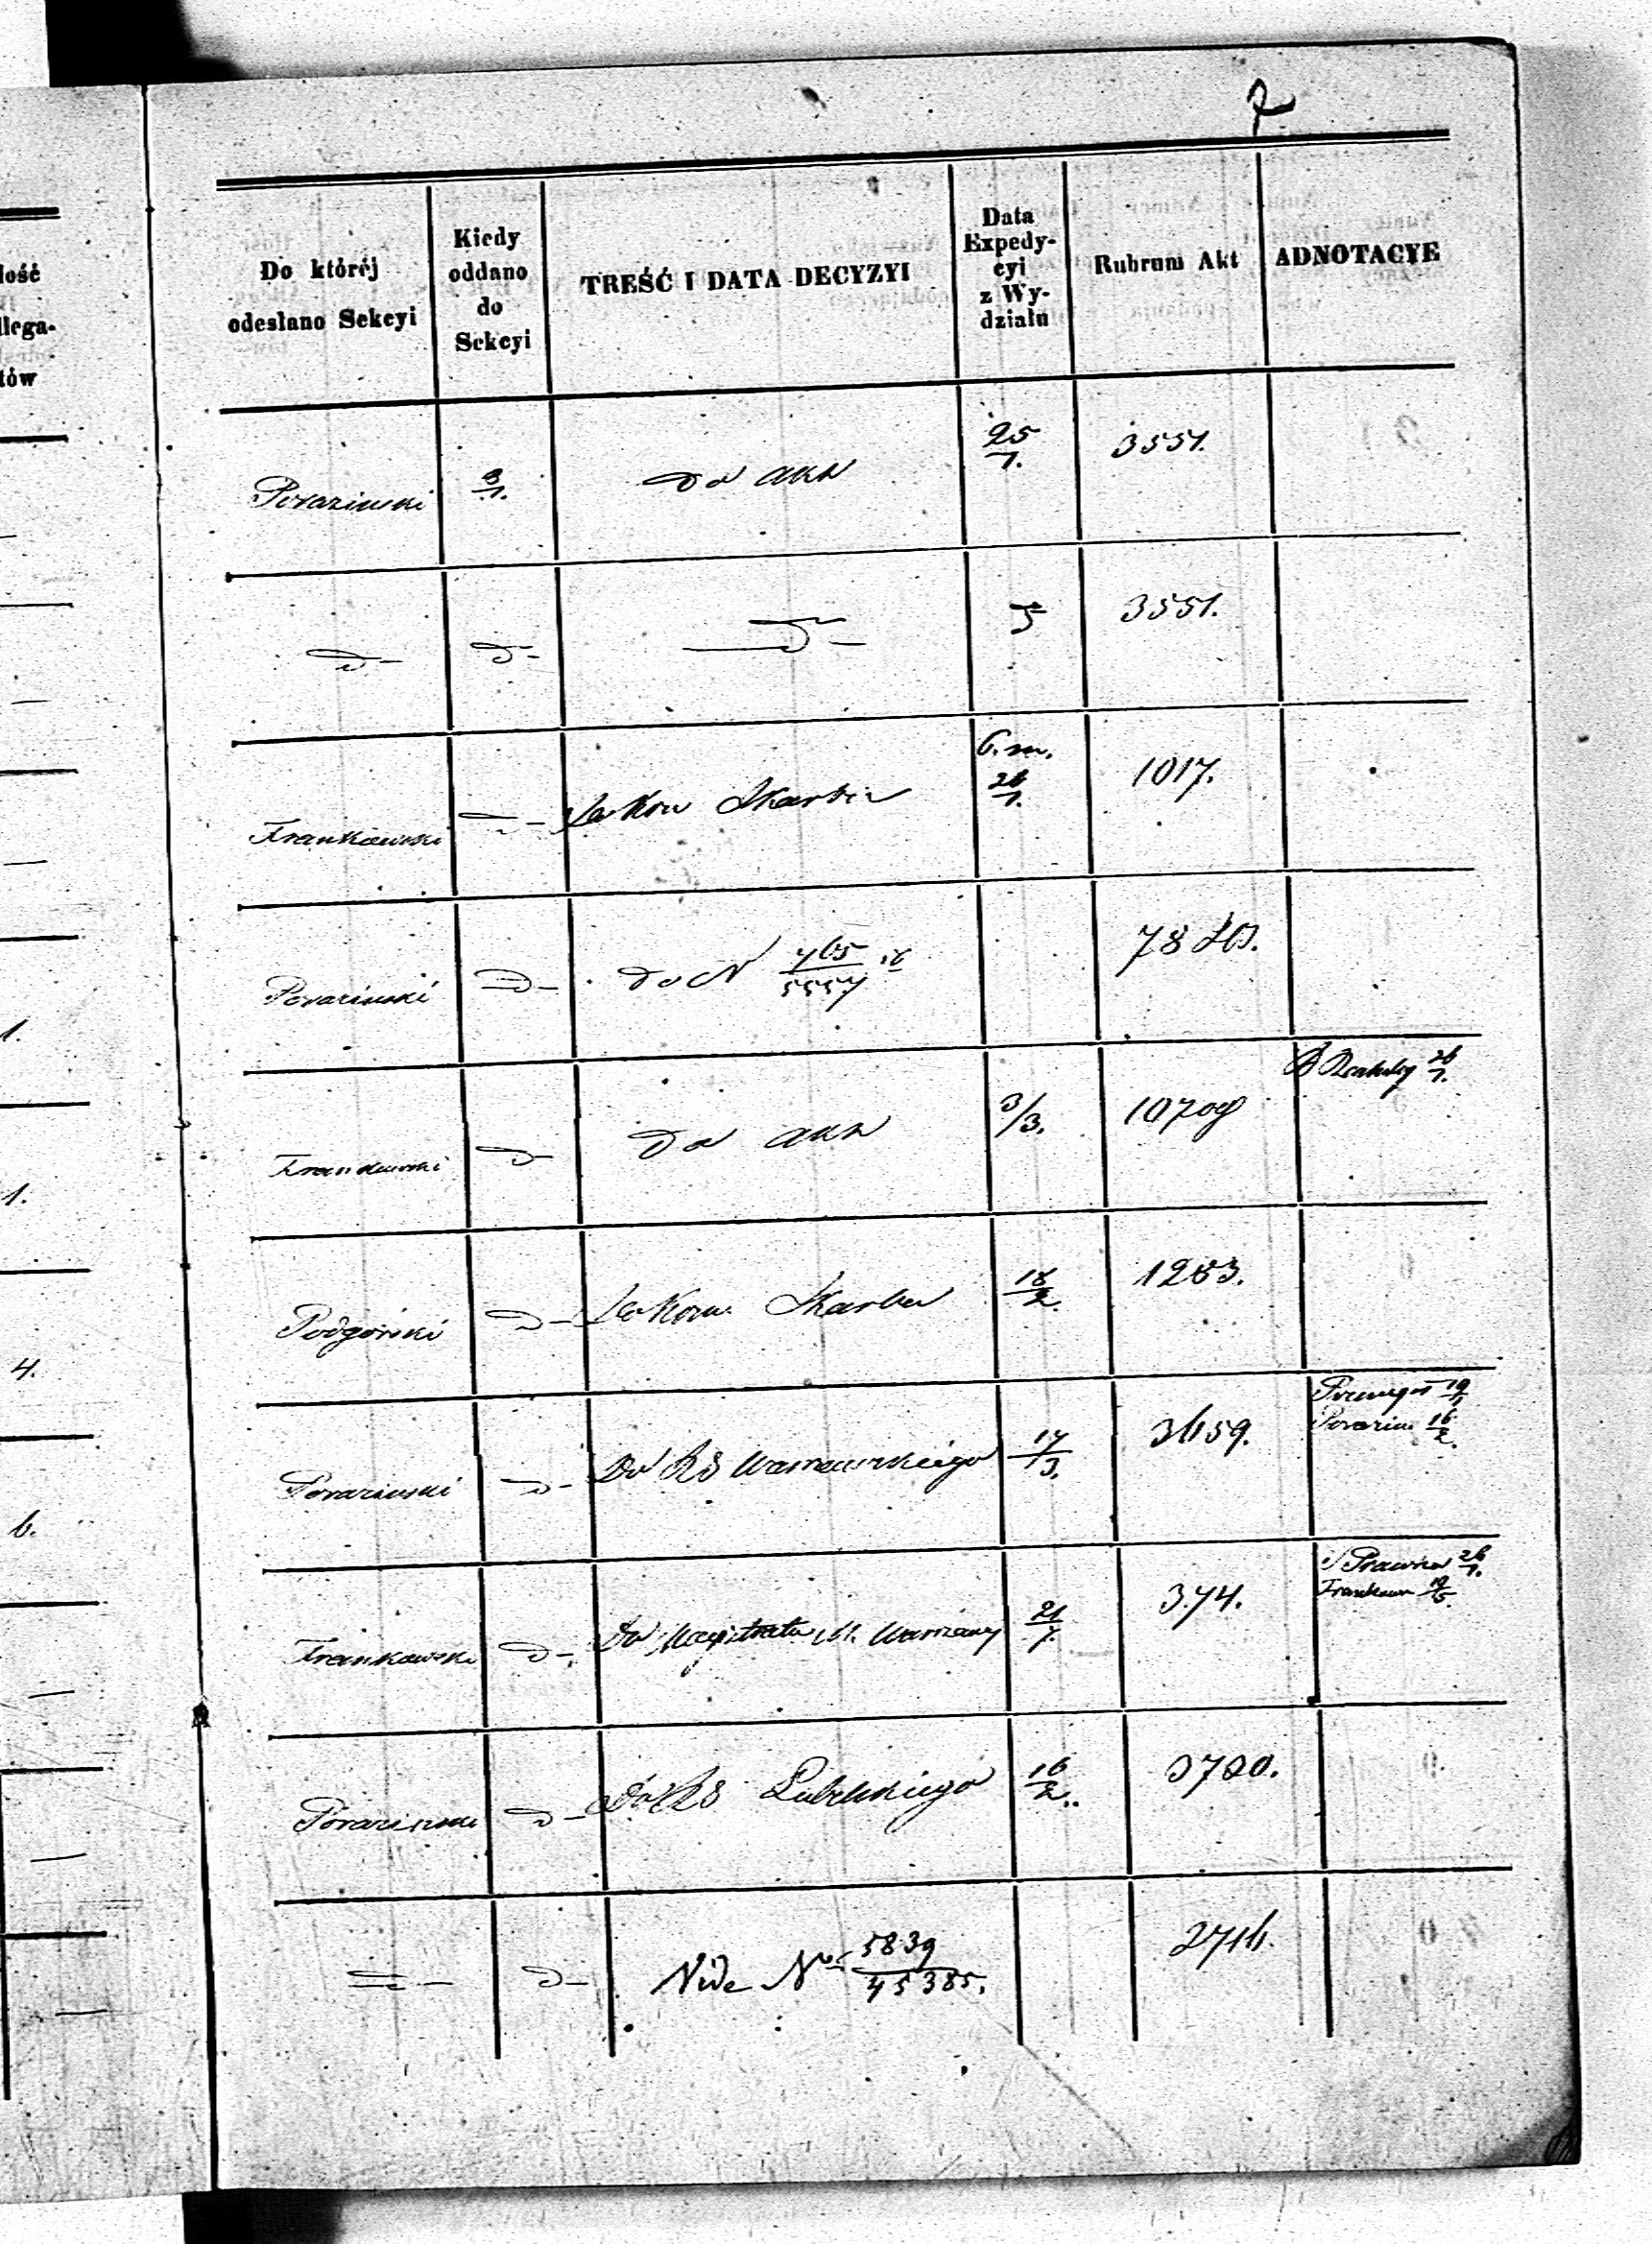 7
lość
llega-
tów
Do któréj
odesłano Sekcyi
Kiedy
oddano
do
Sekcyi
TREŚĆ I DATA DECYZYI
Data
Expedy-
cyi
z Wy-
działu
Rubrum Akt
ADNOTACYE
Poraziński 3/1. do akt 25/1. 3551.
d- d- d- d 3551.
Frankowski d- Skarbu 26/1. 1017.
Poraziński d- do N 465/5554 78
Frankowski d- do akt 3/3. 1070 26/1.
1.
1.
Podgórski d- Skarbu 18/2. 1283.
4.
Poraziński d- Do RG Warszawskiego 17/3. 3659. 19/1
Porazin. 16/2.
6.
Frankowski d- Do Magistratu M. Warszawy 21/7. 374. Prawna 26/1.
Frankow 19/5.
Poraziński d- Do RG Lubelskiego 16/2. 3720.
d- d- Vide Nr 5839/45385. 2716.